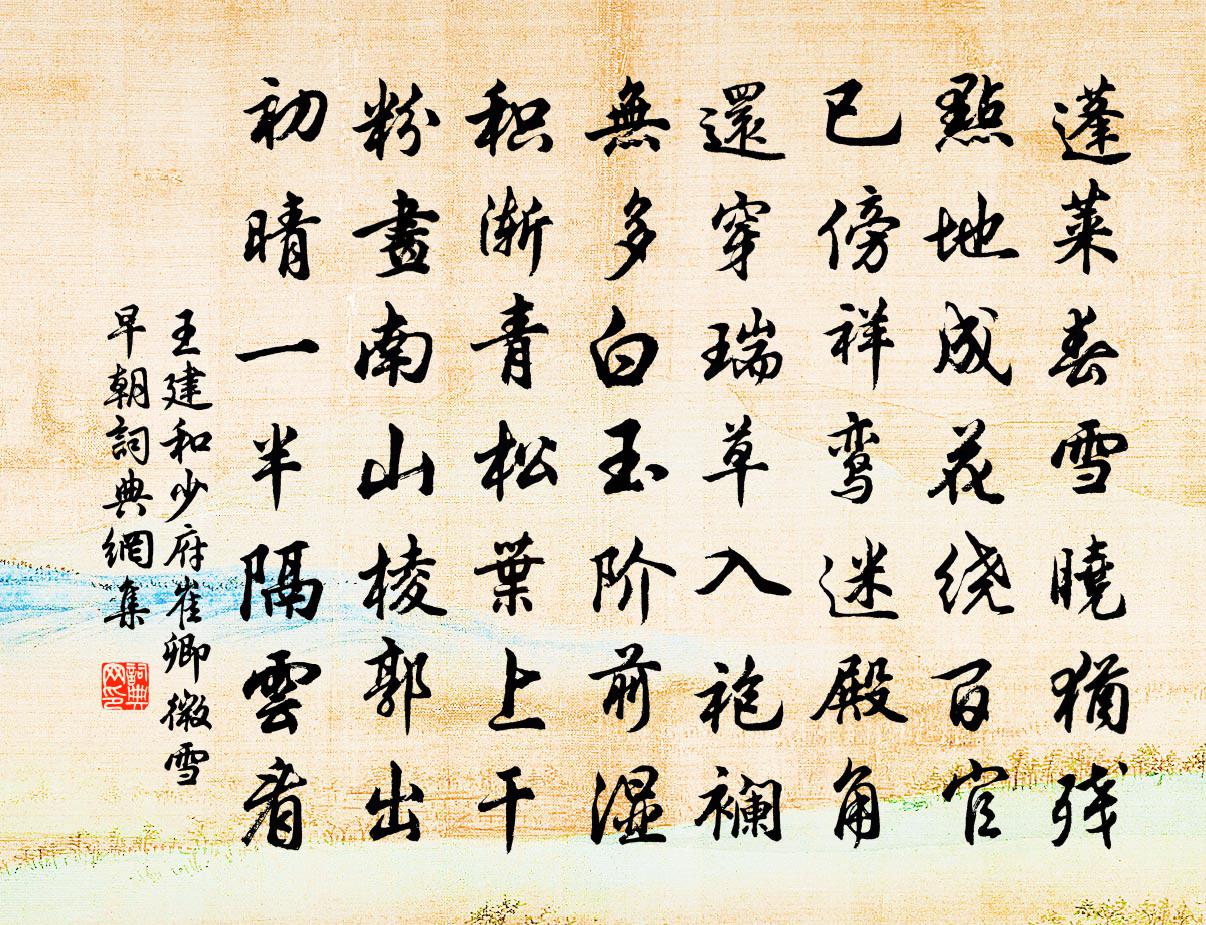 蓬萊春雪曉猶残
點地成花绕百官
已傍祥鸾迷殿角
還穿瑞草入袍襕
無多白玉阶前湿
积渐青松葉上干
粉畫南山棱郭出
初晴一半隔雲看
王建和少府崔卿微雪
早朝詞典網集
詞典网印